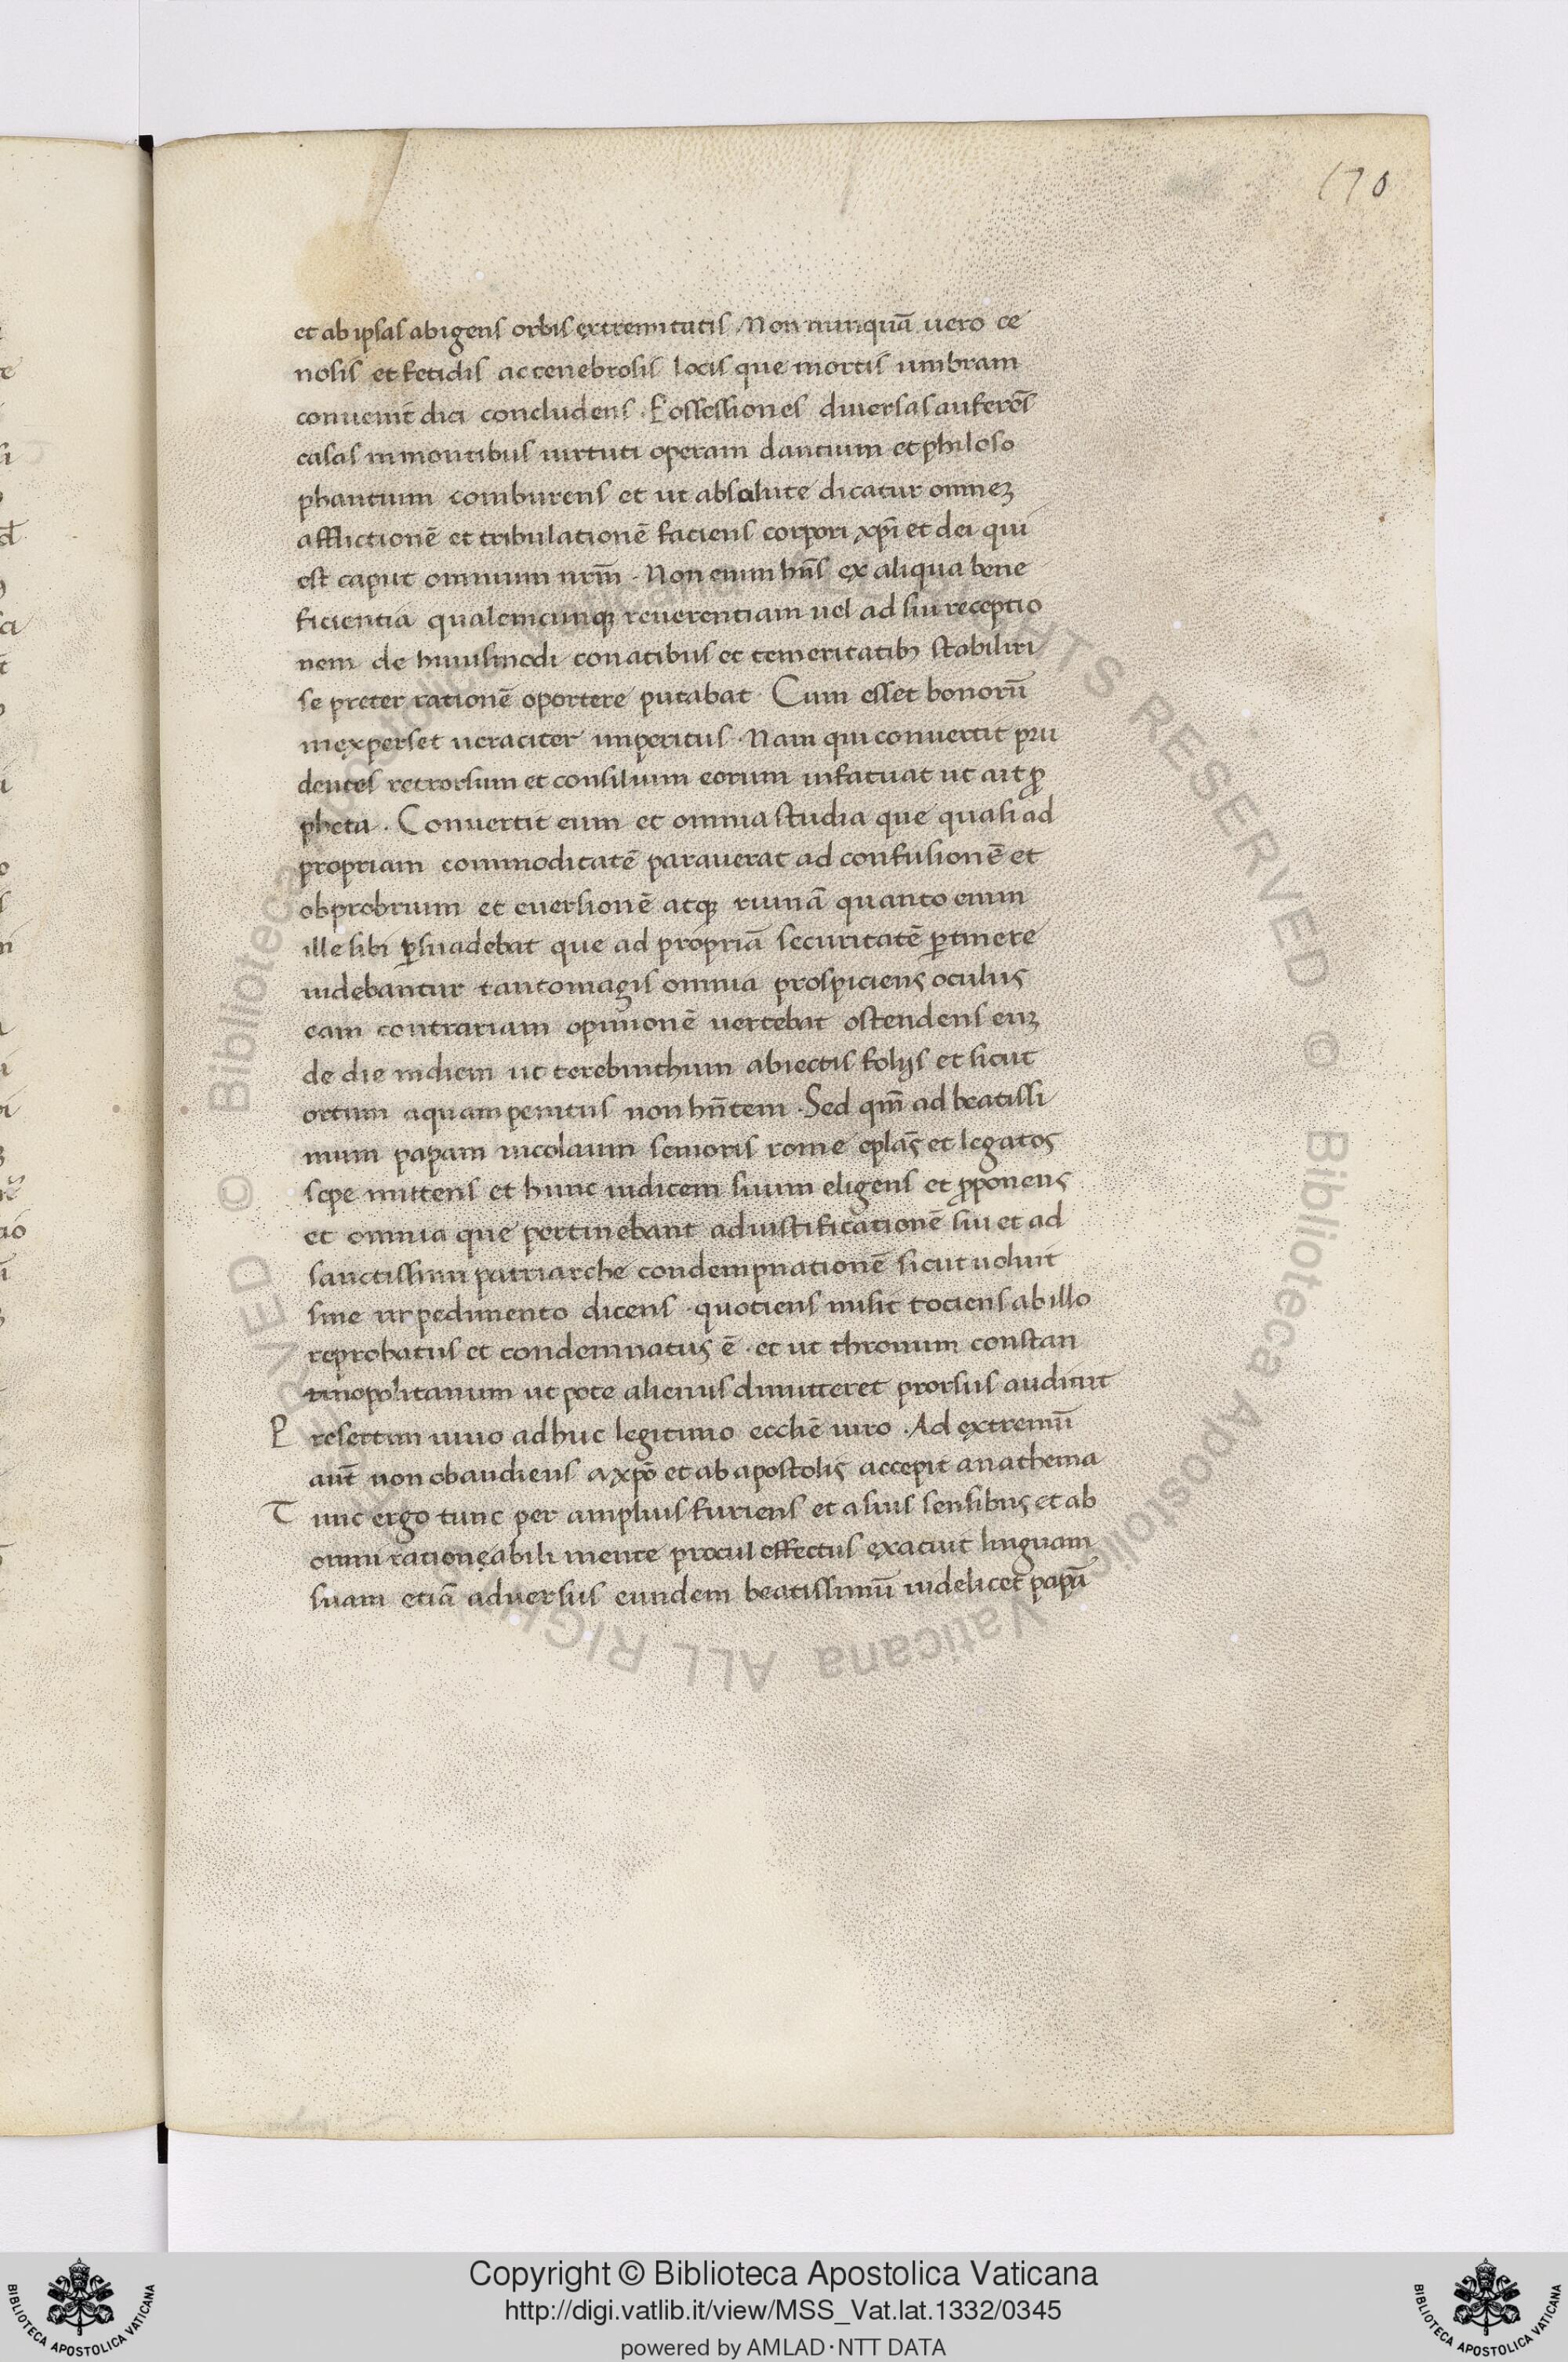 170
et ab ipsas abigens orbis extremitatis. Non nunquā uero ce
nosis et fetidis ac tenebrosis locis que mortis umbram
conuenit dici concludens. Possessiones diuersas auferēs
casas in montibus uirtuti operam dantium et philoso
phantium comburens et ut absolute dicatur omneꝫ
afflictionē et tribulationē faciens corpori xp̄i et dei qui
est caput omnium nr̄m. Non enim hn̄s ex aliqua bene
ficientia qualemcunqꝫ reuerentiam uel ad sui receptio
nem de huiusmodi conatibus et temeritatibꝫ stabiliri
se preter rationē oportere putabat. Cum esset bonorū
inexpers et ueraciter imperitus. Nam qui conuertit pru
dentes retrorsum et consilium eorum infatuat ut ait ꝓ
pheta. Conuertit eum et omnia studia que quasi ad
propriam commoditatē parauerat ad confusionē et
obprobrium et euersionē atqꝫ ruinā quanto enim
ille sibi ꝑsuadebat que ad propriā securitatē ꝑtinere
uidebantur tantomagis omnia prospiciens oculus
eam contrariam opinionē uertebat ostendens euꝫ
de die in diem ut terebinthum abiectis folijs et sicut
ortum aquam penitus non hn̄tem. Sed qm̄ ad beatissi
mum papam nicolaum senioris rome epl̄as et legatos
sepe mittens et hunc iudicem suum eligens et ꝓponens
et omnia que pertinebant ad iustificationē sui et ad
sanctissimi patriarche condempnationē sicut uoluit
sine impedimento dicens. quotiens misit tociens ab illo
reprobatus et condemnatus ē. et ut thronum constan
tinopolitanum ut pote alienus dimitteret prorsus audiuit
Presertim uiuo adhuc legitimo ecclīe uiro. Ad extremū
aut̄ non obaudiens a xp̄o et ab apostolis accepit anathema
Tunc ergo tunc per amplius furiens et a suis sensibus et ab
omni rationeabili mente procul effectus exacuit linguam
suam etiā aduersus eundem beatissimū uidelicet papā
Copyright © Biblioteca Apostolica Vaticana
http://digi.vatlib.it/view/MSS_Vat.lat.1332/0345
powered by AMLAD·NTT DATA
BIBLIOTECA APOSTOLICA VATICANA
BIBLIOTECA APOSTOLICA VATICANA
© Biblioteca Apostolica Vaticana ALL RIGHTS RESERVED © Biblioteca Apostolica Vaticana ALL RIGHTS RESERVED